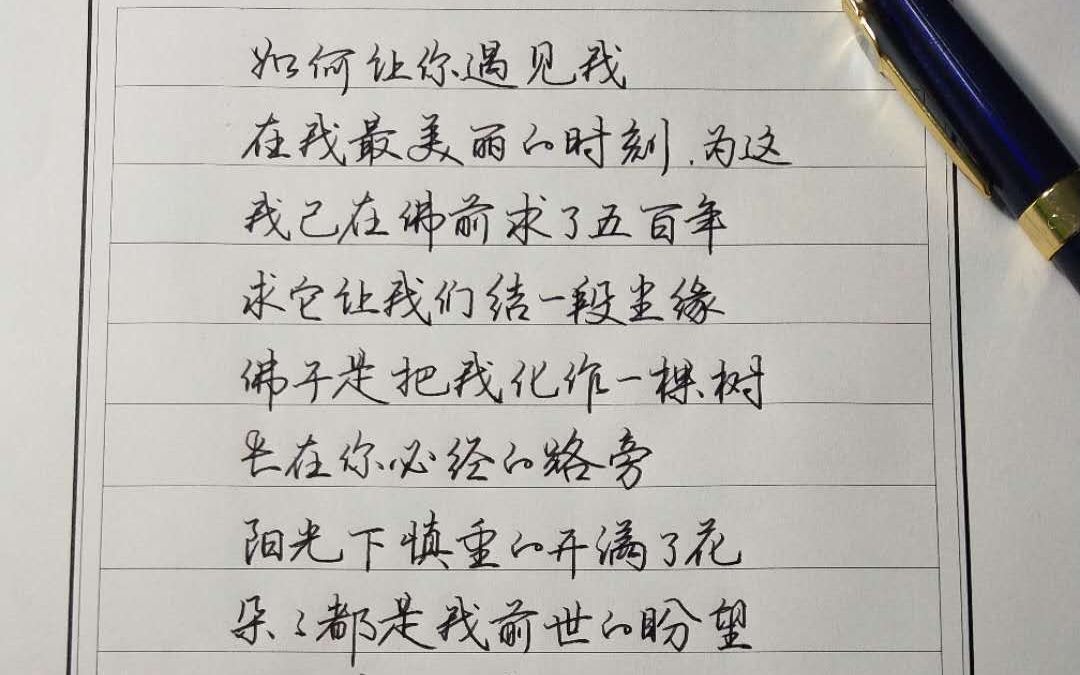 如何让你遇见我
在我最美丽的时刻，为这
我已在佛前求了五百年
求它让我们结一段尘缘
佛于是把我化作一棵树
长在你必经的路旁
阳光下慎重的开满了花
朵々都是我前世的盼望